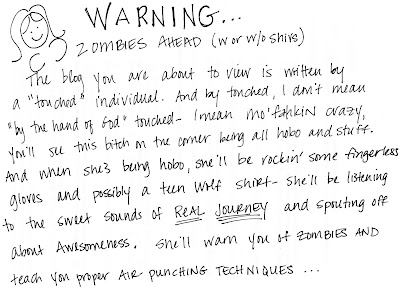 WARNING...
ZOMBIES AHEAD (W or W/o Shivs)
The blog you are about to view is written by
a "touched" individual. And by touched, I don't mean
"by the hand of God" touched - I mean mo'fahkin crazy,
you'll see this bitch on the corner being all hobo and stuff.
And when she's being hobo, she'll be rockin' some fingerless
gloves and possibly a teen wolf shirt - she'll be listening
to the sweet sounds of REAL JOURNEY and spouting off
about Awesomeness. She'll warn you of ZOMBIES AND
teach you proper AIR PUNCHING TECHNIQUES ...